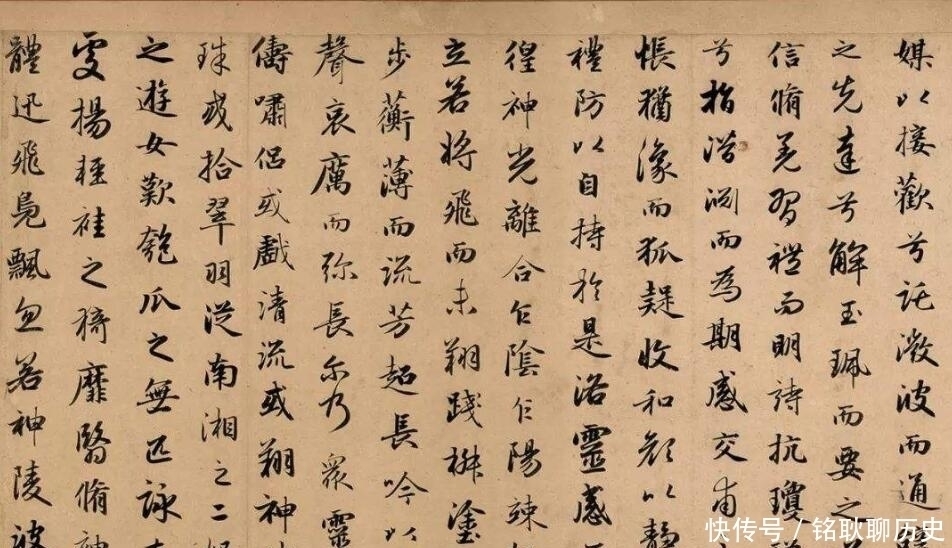 媒以接歡兮託微波而通
之先達兮解玉珮而要之
信脩羌習禮而明詩抗瓊
兮指潛淵而為期感交甫
悵猶豫而狐疑收和顏以靜
禮防以自持於是洛靈感
徨神光離合乍陰乍陽竦
立若將飛而未翔踐椒塗
步蘅薄而流芳超長吟以
聲哀厲而弥長尔乃眾靈
儔嘯侶或戲清流或翔神
珠或拾翠羽從南湘之二
之遊女歎匏瓜之無匹詠
處揚輕袿之猗靡翳脩
體迅飛鳧飄忽若神陵波
快传号／铭耿聊历史